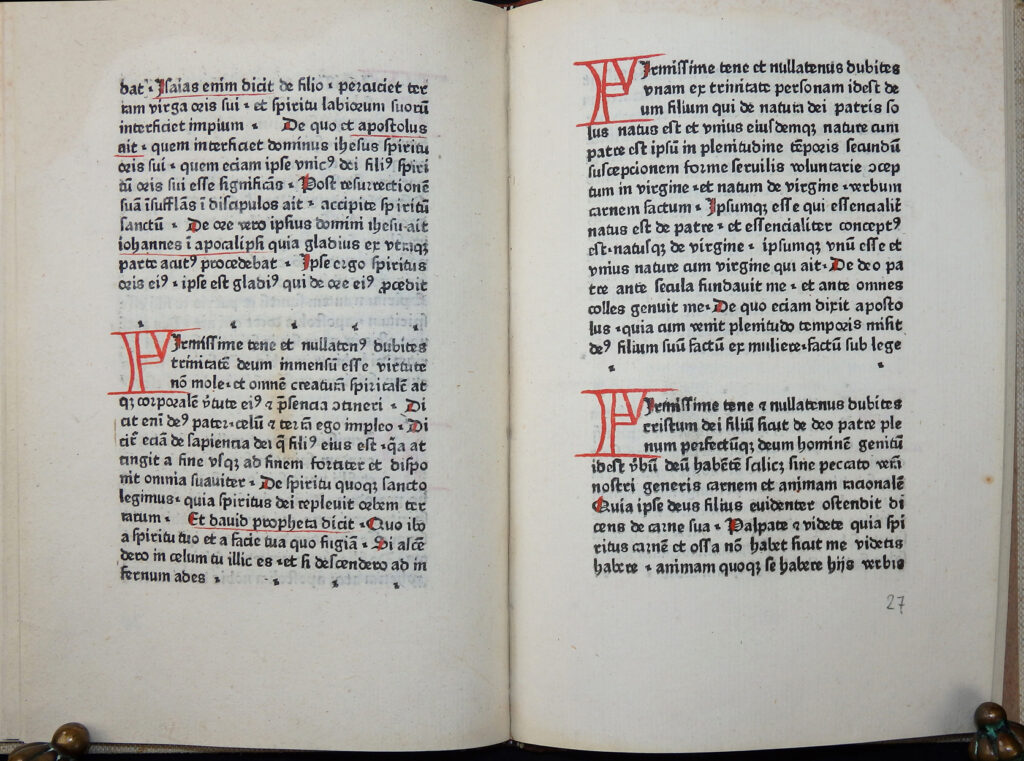 bat · Isaias enim dicit de filio · percuciet ter
ram virga oris sui · et spiritu labiorum suorū
interficiet impium · De quo et apostolus
ait · quem interficiet dominus ihesus spiritu
oris sui · quem eciam ipse vnicꝰ dei filiꝰ spiri
tū oris sui esse significās · Post resurrectionē
suā īsufflās ī discipulos ait · accipite spiritū
sanctū · De ore vero ipsius domini ihesu ait
iohannes ī apocalipsi quia gladius ex vtraqꝫ
parte acutꝰ procedebat · Ipse ergo spiritus
oris eiꝰ · ipse est gladiꝰ qui de ore eiꝰ ꝓcedit
FIrmissime tene et nullatenꝰ dubites
trinitatē deum immensū esse virtute
nō mole · et omnē creaturā spiritalē at
qꝫ corporalē v̄tute eiꝰ et p̄sencia ↄtineri · Di
cit enī deꝰ pater · celū et terrā ego impleo · Di
cit̄ eciā de sapiencia dei q̄ filiꝰ eius est · qa at
tingit a fine vsqꝫ ad finem fortiter et dispo
nit omnia suauiter · De spiritu quoqꝫ sancto
legimus · quia spiritus dei repleuit orbem ter
rarum · Et dauid propheta dicit · Quo ibo
a spiritu tuo et a facie tua quo fugiā · Si ascē
dero in celum tu illic es · et si descendero ad in
fernum ades ·
FIrmissime tene et nullatenus dubites
vnam ex trinitate personam idest de
um filium qui de natura dei patris so
lus natus est et vnius eiusdemqꝫ nature cum
patre est ipsū in plenitudine tēporis secundū
suscepcionem forme seruilis voluntarie ↄcep
tum in virgine · et natum de virgine · verbum
carnem factum · Ipsumqꝫ esse qui essencialit̄
natus est de patre · et essencialiter conceptꝰ
est · natusqꝫ de virgine · ipsumqꝫ vnū esse et
vnius nature cum virgine qui ait · De deo pa
tre ante secula fundauit me · et ante omnes
colles genuit me · De quo eciam dixit aposto
lus · quia cum venit plenitudo temporis misit
deꝰ filium suū factū ex muliere · factū sub lege
FIrmissime tene ⁊ nullatenus dubites
cristum dei filiū sicut de deo patre ple
num perfectūqꝫ deum hominē genitū
idest v̄bū deū habētē scilicꝫ sine peccato veri
nostri generis carnem et animam racionalē
Quia ipse deus filius euidenter ostendit di
cens de carne sua · Palpate ⁊ videte quia spi
ritus carnē et ossa nō habet sicut me videtis
habere · animam quoqꝫ se habere hijs verbis
27